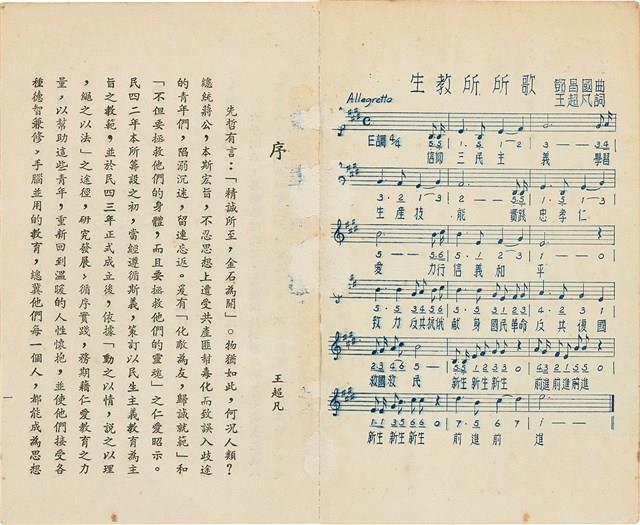 生教所所歌
鄧昌國曲
王超凡詞
Allegretto
E調 4/4
5.5 1.5 1 2 3 — — 34
信仰三民主義 學習
3.2 1 3 2 — — 5.5 1.5 1
生產技能 實踐忠孝仁
5 — — 5.6 5.5 1 2 3 1 — — 0
愛 力行信義和平
5.5 3.4 5.5 3.4 5.5 3.1 2.4 2 3 1
致力反共抗俄獻身國民革命反共復國
2.3 4.6 5 — 5.5 1.3 0 5.5 1.3 0
救國救民 新生新生 前進前進前進
1.1 3.5 6.6 0 7.5 6 7 i — — 0
新生新生新生 前進前進
序
王超凡
先哲有言：「精誠所至，金石為開」。物猶如此，何況人類？
總統蔣公，本斯宏旨，不忍思想上遭受共產匪幫毒化而致誤入歧途
的青年們，陷溺沉迷，留連忘返。爰有「化敵為友，歸誠就範」和
「不但要拯救他們的身體，而且要拯救他們的靈魂」之仁愛昭示。
民四二年本所籌設之初，當經遵循斯義，策訂以民生主義教育為主
旨之教範，並於民四三年正式成立後，依據「動之以情，說之以理
，繩之以法」之途徑，研究發展，循序實踐，務期藉仁愛教育之力
量，以幫助這些青年，重新回到溫暖的人性懷抱，並使他們接受各
種德智兼修，手腦並用的教育，總冀他們每一個人，都能成為思想
一